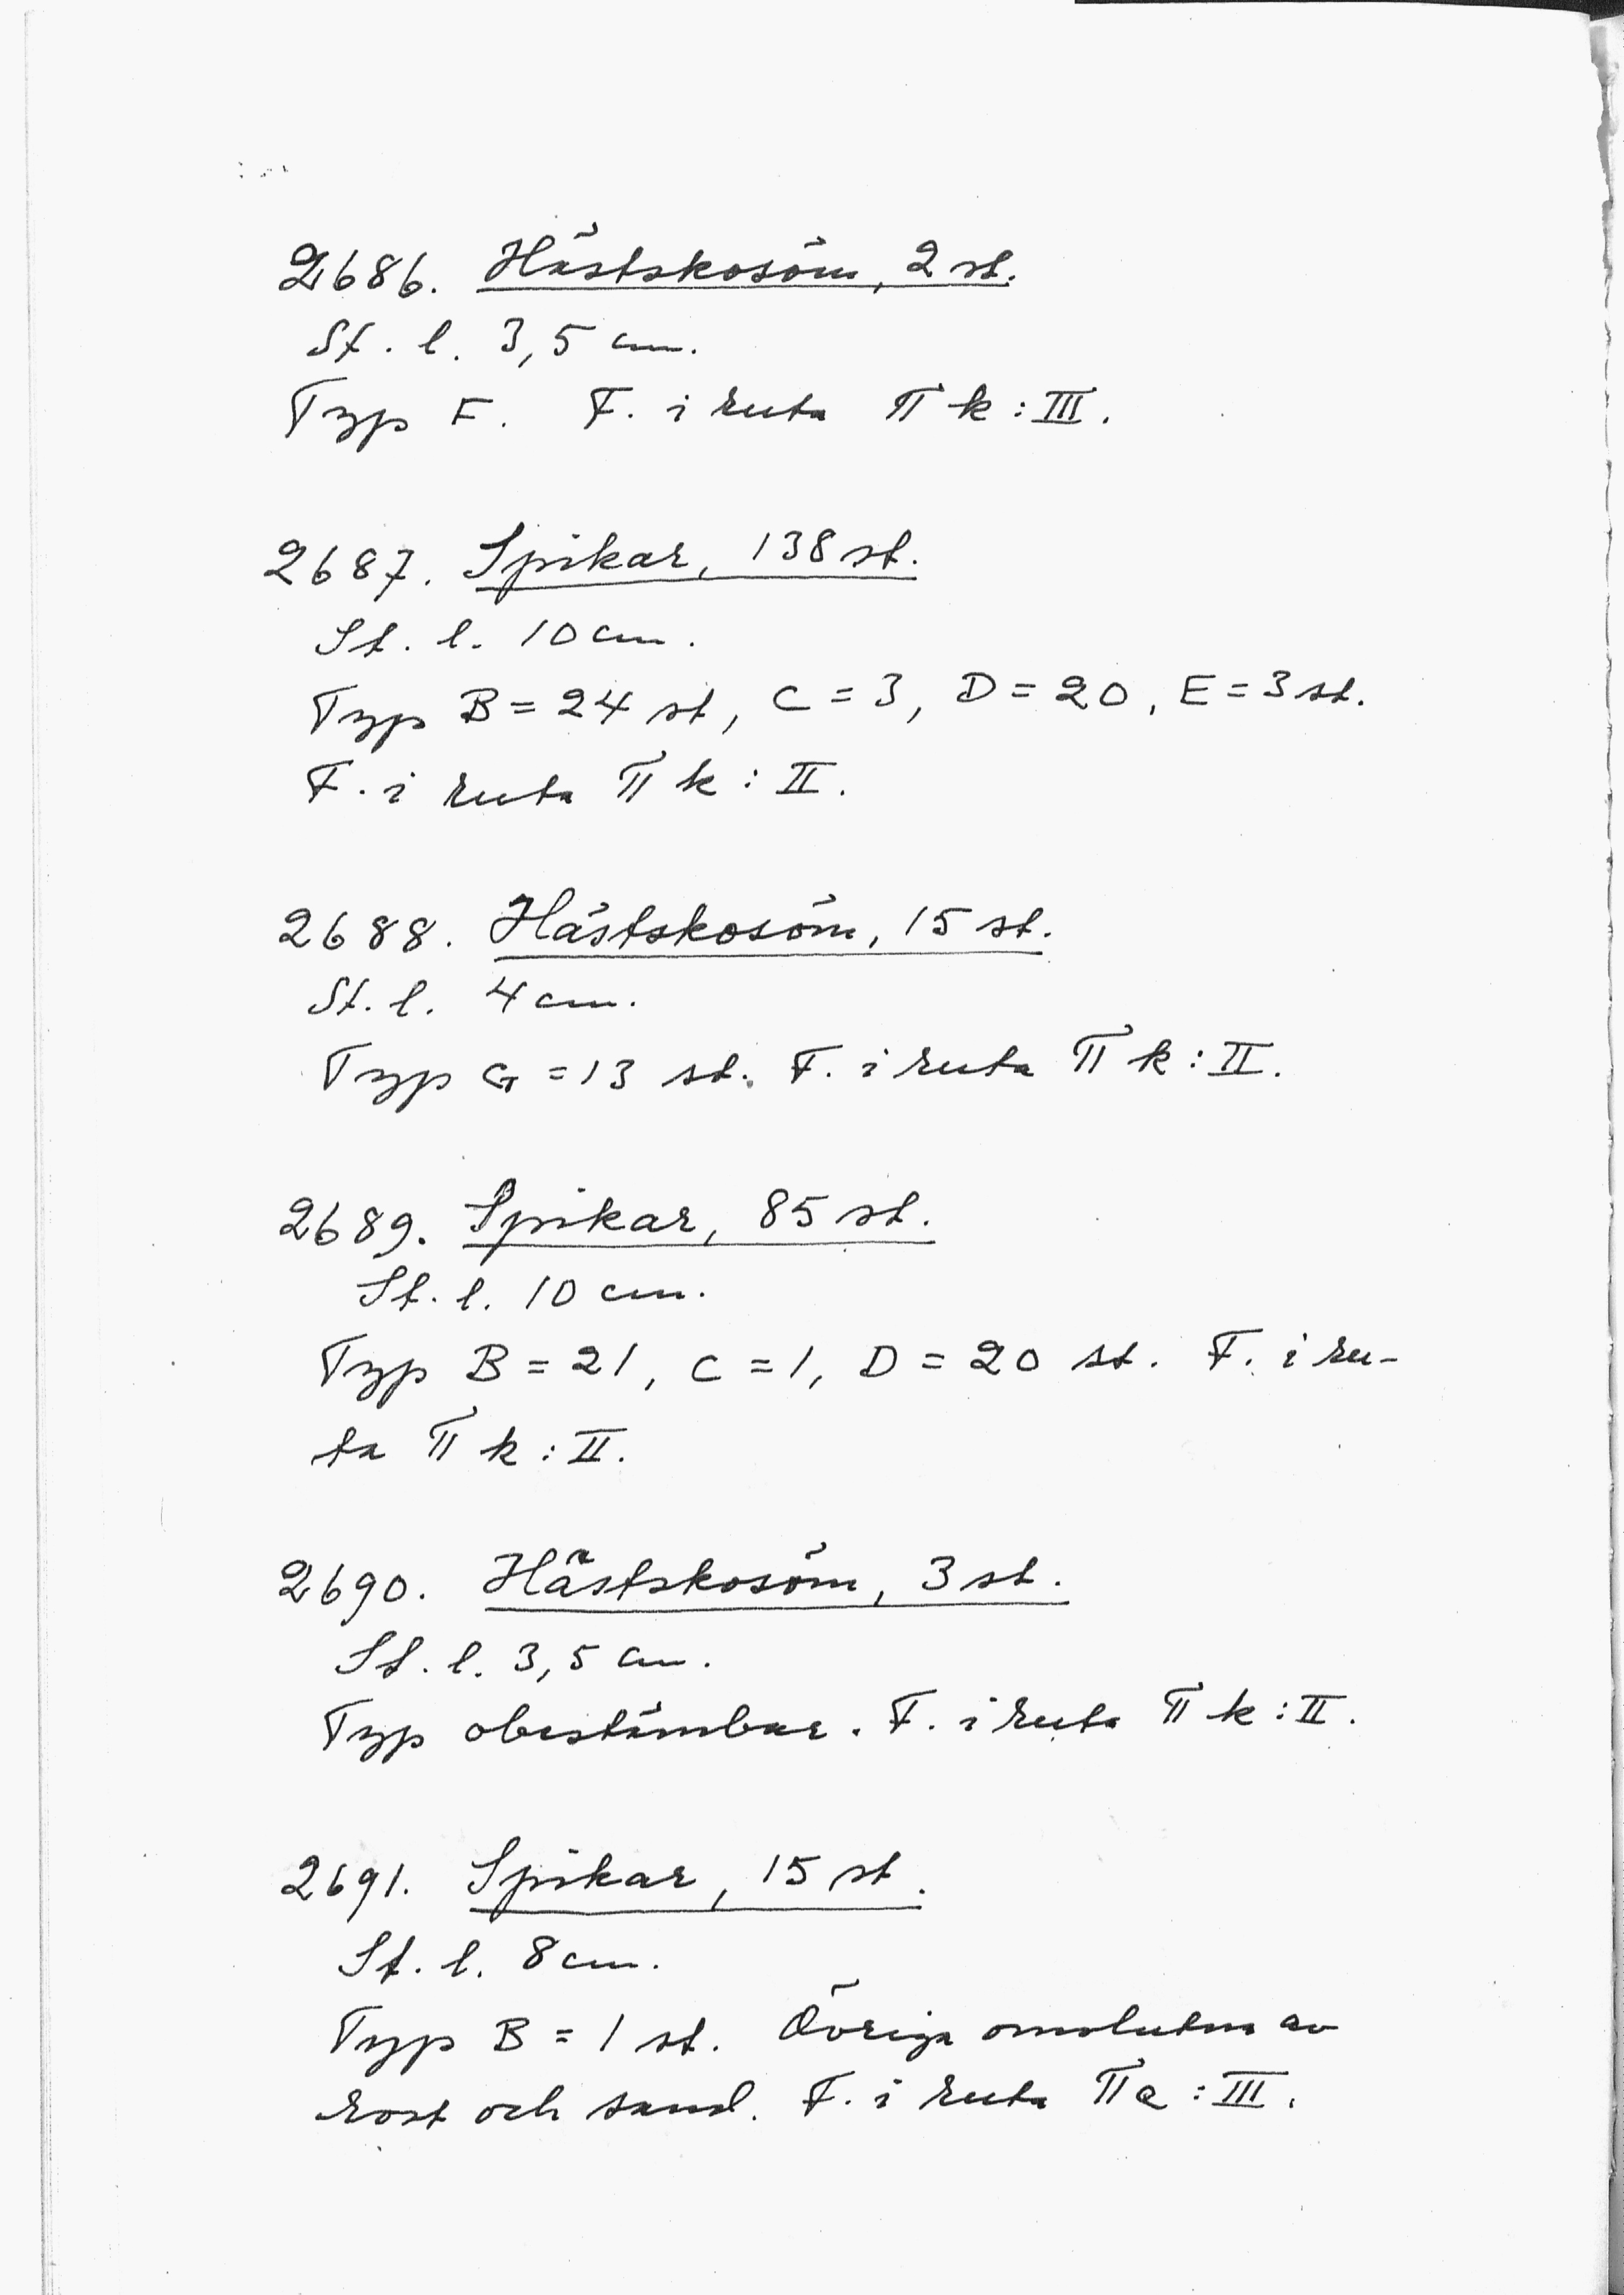 2686. Hästskosöm, 2 st.
St. l. 3,5 cm.
Typ F. F. i ruta II k : III.
2687. Spikar, 138 st.
St. l. 10 cm.
Typ B = 24 st, C = 3, D = 20, E = 3 st.
F. i ruta II k : II.
2688. Hästskosöm, 15 st.
St. l. 4 cm.
Typ G = 13 st. F. i ruta II k : II.
2689. Spikar, 85 st.
St. l. 10 cm.
Typ B = 21, C = 1, D = 20 st. F. i ru-
ta II k : II.
2690. Hästskosöm, 3 st.
St. l. 3,5 cm.
Typ obestämbar. F. i ruta II k : II.
2691. Spikar, 15 st.
St. l. 8 cm.
Typ B = 1 st. Övriga omslutna av
rost och sand. F. i ruta II a : III.